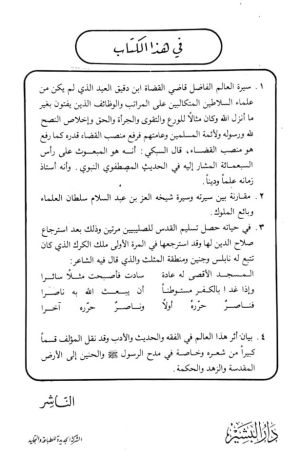 في هذا الكتاب
١ . سيرة العالم الفاضل قاضي القضاة ابن دقيق العيد الذي لم يكن من
علماء السلاطين المتكالبين على المراتب والوظائف الذين يفتون بغير
ما أنزل الله وكان مثالاً للورع والتقوى والجرأة والحق وإخلاص النصح
لله ورسوله ولأئمة المسلمين وعامتهم فرفع منصب القضاء، قدره كما رفع
هو منصب القضاء، قال السبكي: أنه هو المبعوث على رأس
السبعمائة المشار إليه في الحديث المصطفوي النبوي . وأنه أستاذ
زمانه علماً وديناً.
٢ . مقارنة بين سيرته وسيرة شيخه العز بن عبد السلام سلطان العلماء
وبائع الملوك.
٣ . في حياته حصل تسليم القدس للصليبيين مرتين وذلك بعد استرجاع
صلاح الدين لها وقد استرجعها في المرة الأولى ملك الكرك الذي كان
تتبع له نابلس وجنين ومنطقة المثلث والذي قال فيه الشاعر:
المسجد الأقصى له عادة سادت فأصبحت مثلاً سائرا
وإذا غدا بالكفر مستوطناً أن يبعث الله به ناصرا
فناصر حرّره أولاً وناصر حرّره آخرا
٤ . بيان أثر هذا العالم في الفقه والحديث والأدب وقد نقل المؤلف قسماً
كبيراً من شعره وخاصة في مدح الرسول ﷺ والحنين إلى الأرض
المقدسة والزهد والحكمة.
الناشر
دار البشير
الشركة الجديدة للطباعة والتجليد